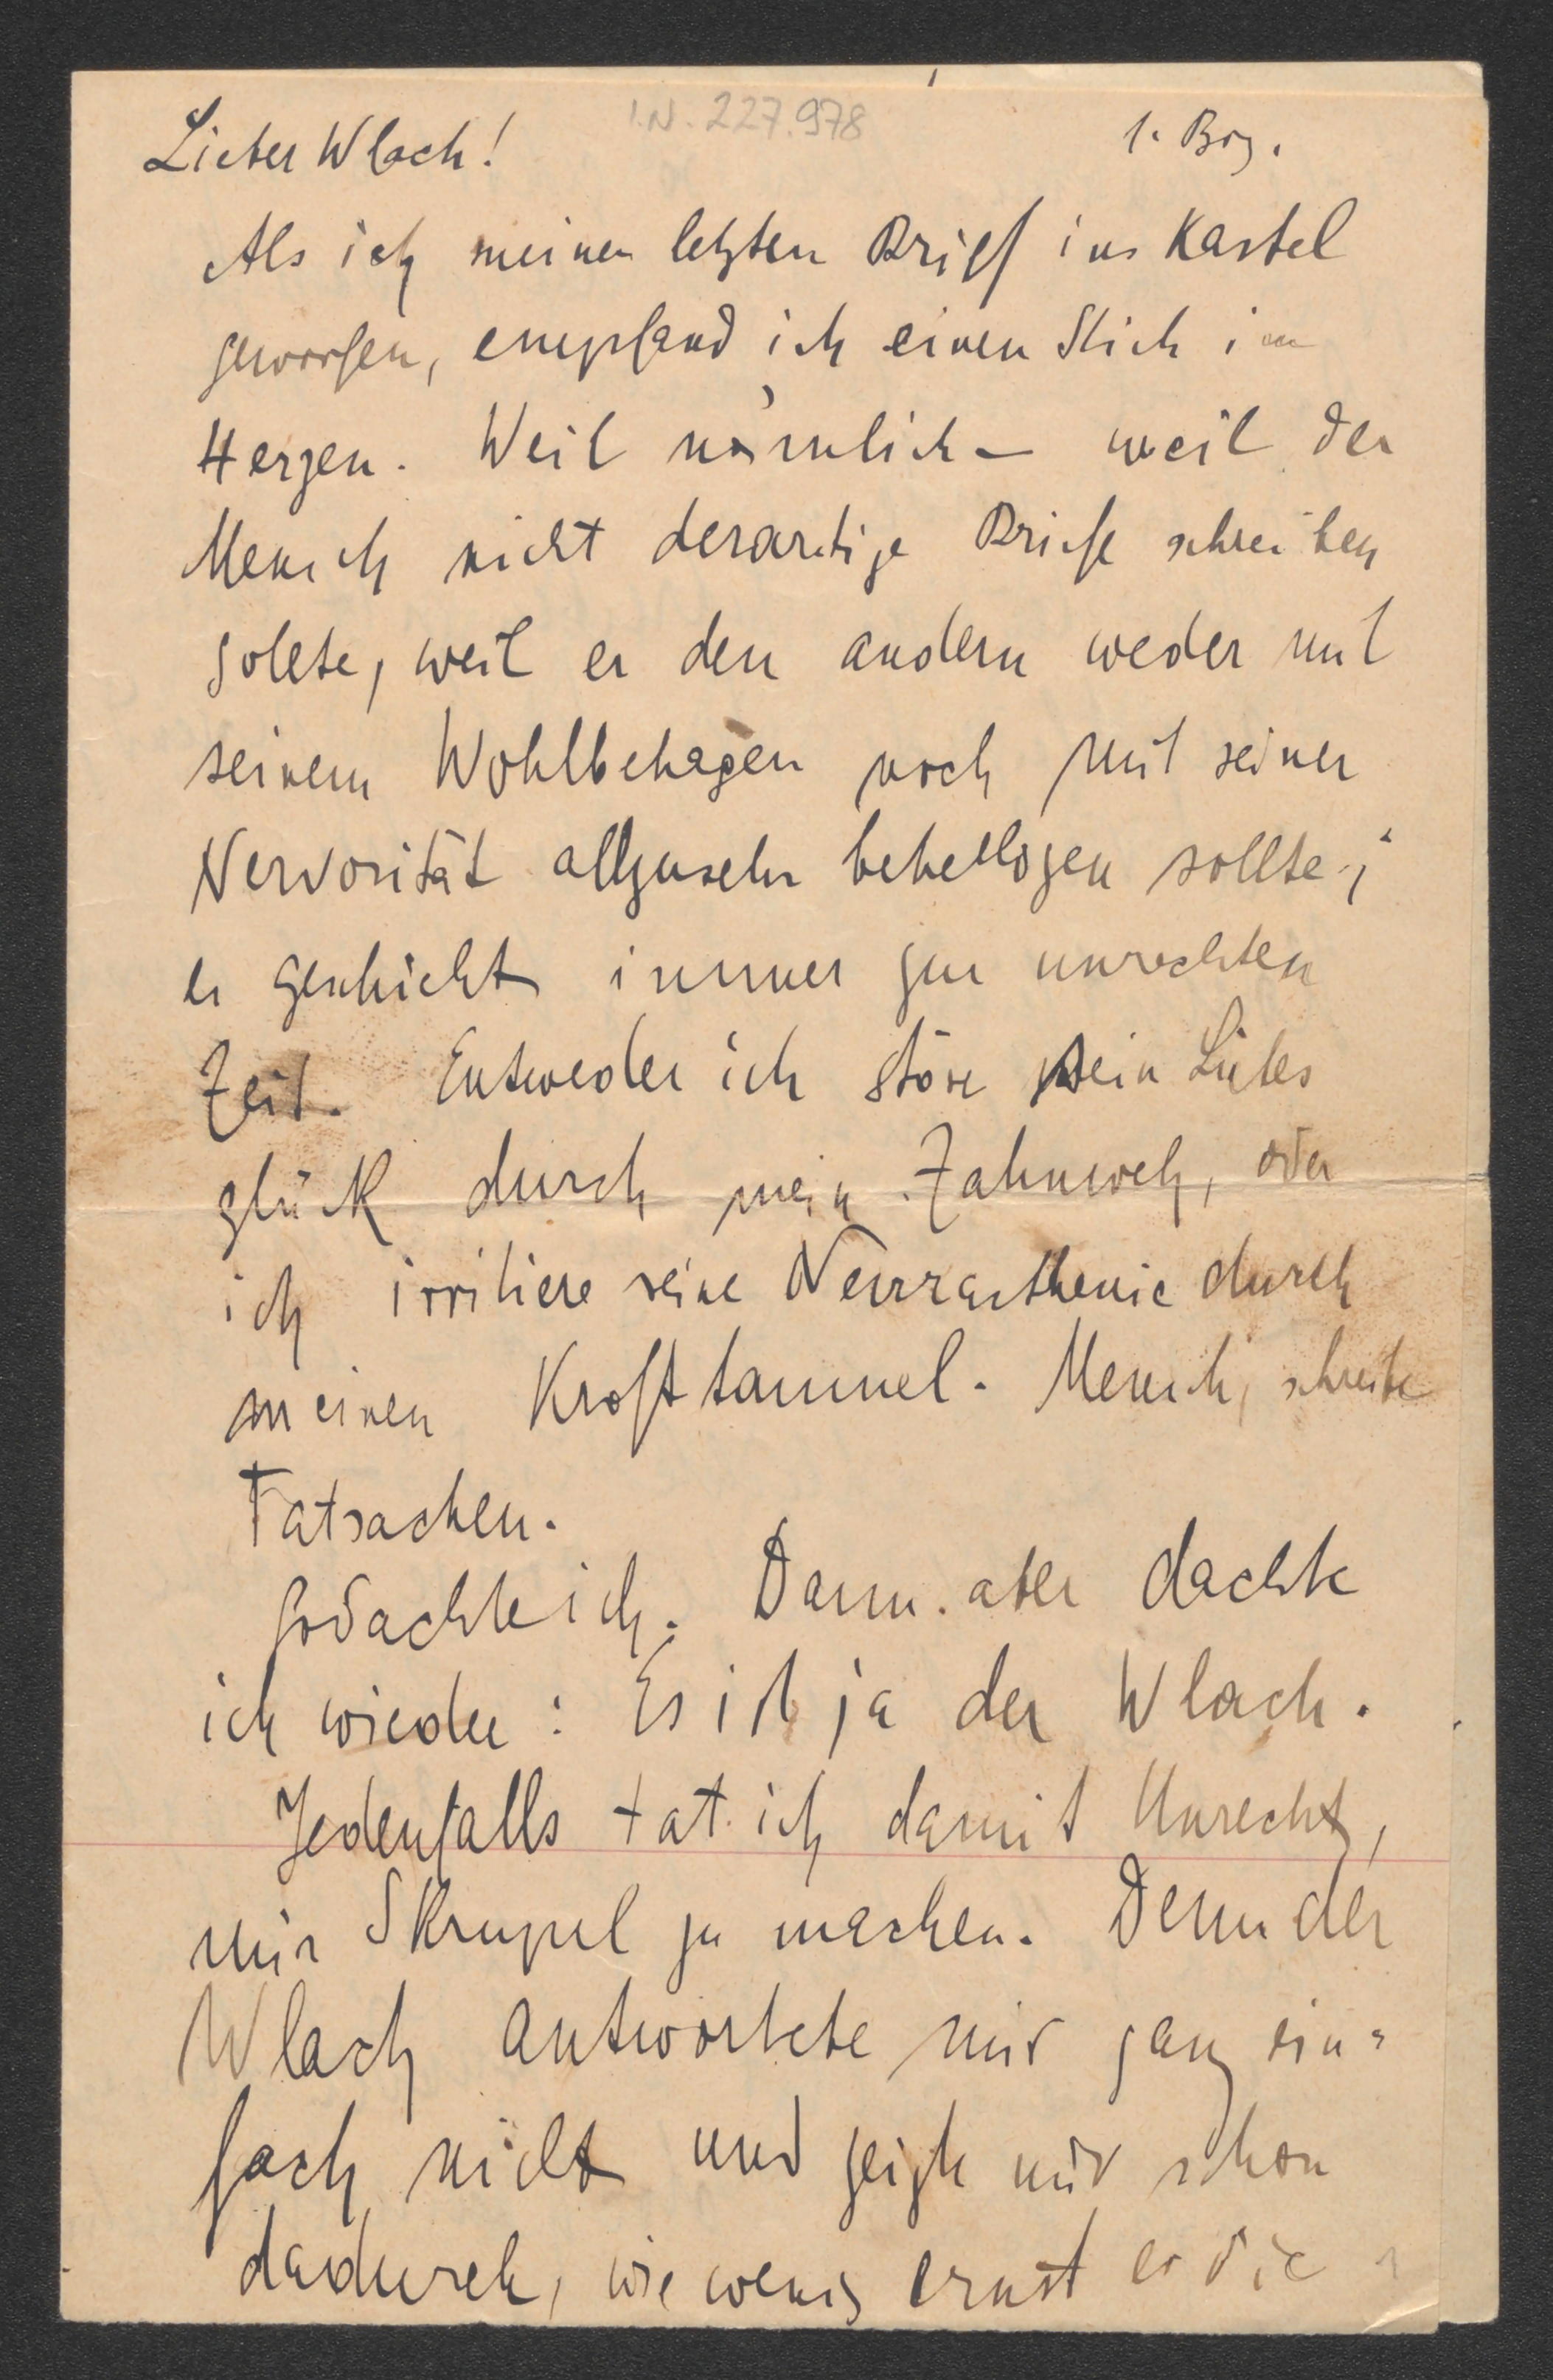 I.N. 227.978
Lieber Wlach! 1. Bog.
Als ich meinen letzten Brief ins Kastel
geworfen, empfand ich einen Stich im
Herzen. Weil nämlich – weil der
Mensch nicht derartige Briefe schreiben
sollte, weil er den andern weder mit
seinem Wohlbehagen noch mit seiner
Nervosität allzusehr behelligen sollte;
es geschieht immer zur unrechten
Zeit. Entweder ich störe sein Liebes
glück durch mein Zahnweh, oder
ich irritiere seine Neurasthenie durch
meinen Krafttaumel. Mensch, schreibe
Tatsachen.
So dachte ich. Dann aber dachte
ich wieder: Es ist ja der Wlach.
Jedenfalls tat ich damit Unrecht,
mir Skrupel zu machen. Denn der
Wlach antwortete mir ganz ein=
fach nicht und zeigte mir schon
dadurch, wie wenig ernst er die